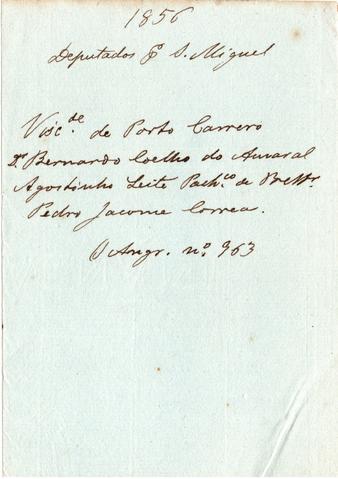 1856
Deputados p. S. Miguel
Visc.de de Porto Carrero
Dr. Bernardo Coelho do Amaral
Agostinho Leite Pach.co de
Pedro Jacome Correa.
O Angr. n.º 963